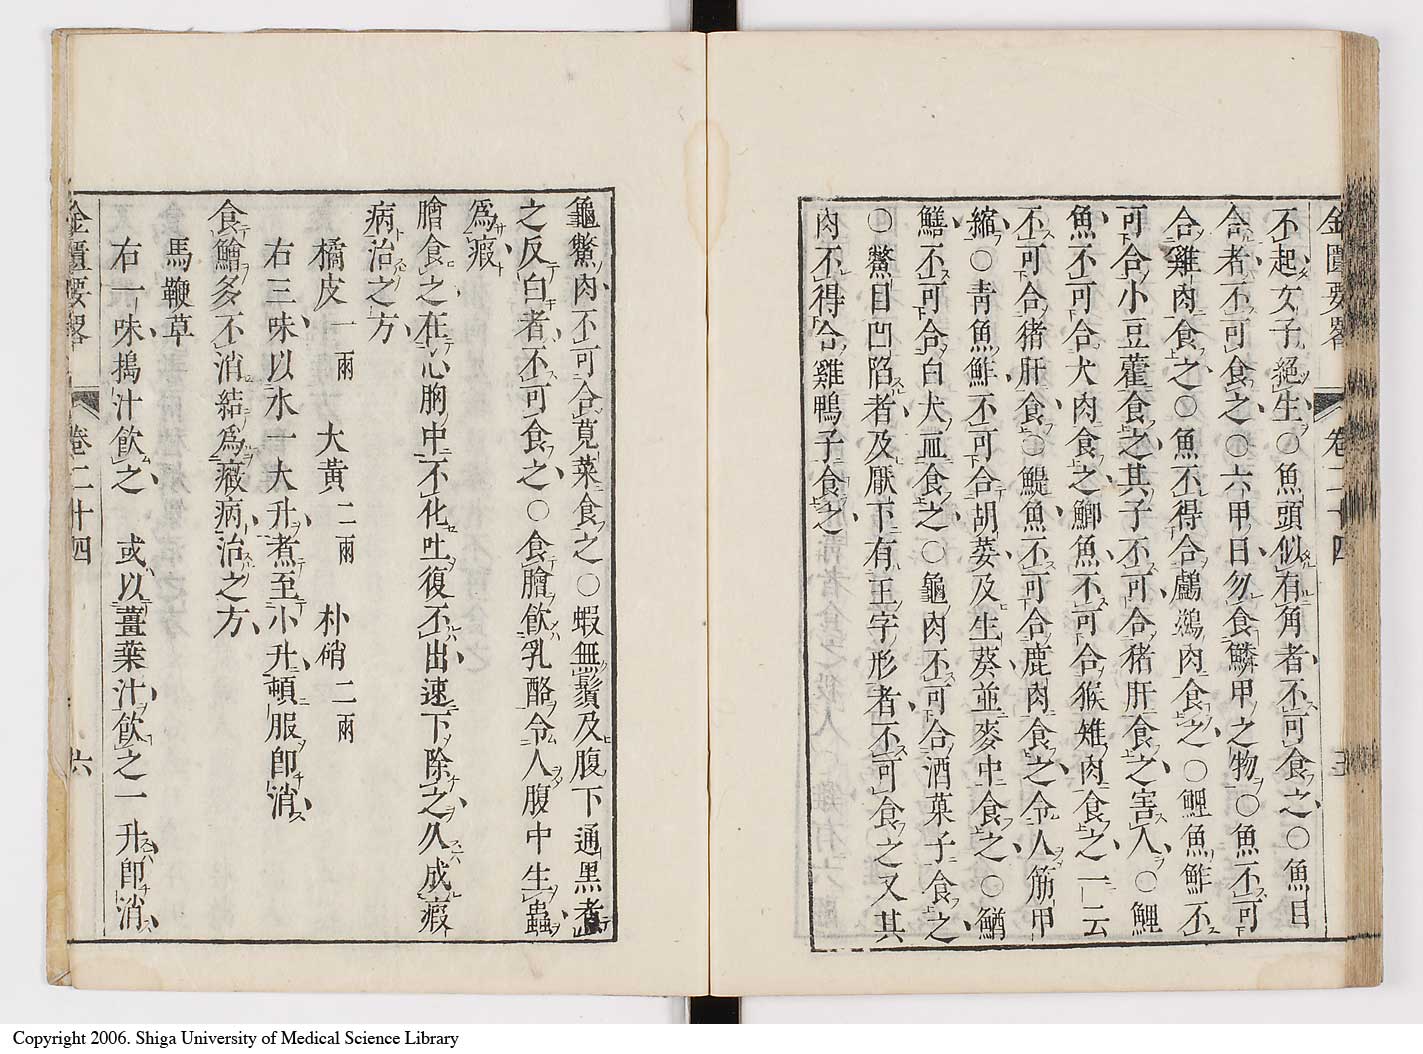 金匱要畧 卷二十四
不起女子絕生○魚頭似有角者不可食之○魚目
合者不可食之○六甲日勿食鱗甲之物○魚不可
合雞肉食之○魚不得合鸕鷀肉食之○鯉魚鮓不
可合小豆藿食之其子不可合猪肝食之害人○鯉
魚不可合犬肉食之鯽魚不可合猴雉肉食之一云
不可合猪肝食○鯷魚不可合鹿肉食之令人筋甲
縮○青魚鮓不可合胡荽及生葵並麥中食之○鰌
鱔不可合白犬血食之○龜肉不可合酒菓子食之
○鱉目凹陷者及厭下有王字形者不可食之又其
肉不得合雞鴨子食之
龜鱉肉不可合莧菜食之○蝦無鬚及腹下通黑煮
之反白者不可食之○食膾飲乳酪令人腹中生蟲
爲瘕
膾食之在心胸中不化吐復不出速下除之久成瘕
病治之方
橘皮一兩 大黃二兩 朴硝二兩
右三味以水一大升煮至小升頓服即消
食鱠多不消結爲癥病治之方
馬鞭草
右一味搗汁飲之 或以薑葉汁飲之一升即消
金匱要畧 卷二十四 六
Copyright 2006. Shiga University of Medical Science Library